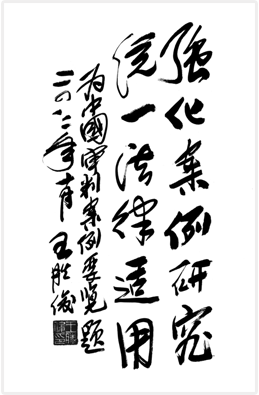 强化案例研究
统一法律适用
为中國审判案例要览题
二〇一二年十月 王胜俊